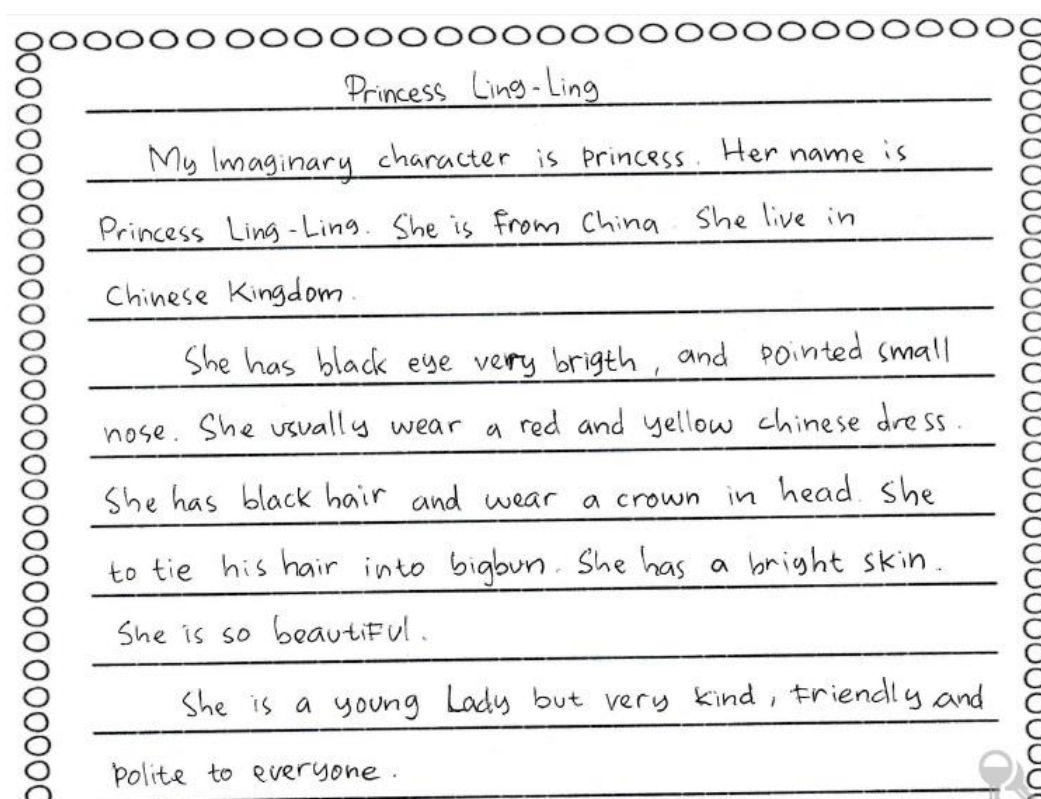 Princess Ling-Ling
My Imaginary character is princess. Her name is
Princess Ling-Ling. She is from China. She live in
Chinese Kingdom.
She has black eye very brigth, and pointed small
nose. She usually wear a red and yellow chinese dress.
She has black hair and wear a crown in head. She
to tie his hair into bigbun. She has a bright skin.
She is so beautiful.
She is a young Lady but very kind, friendly and
polite to everyone.